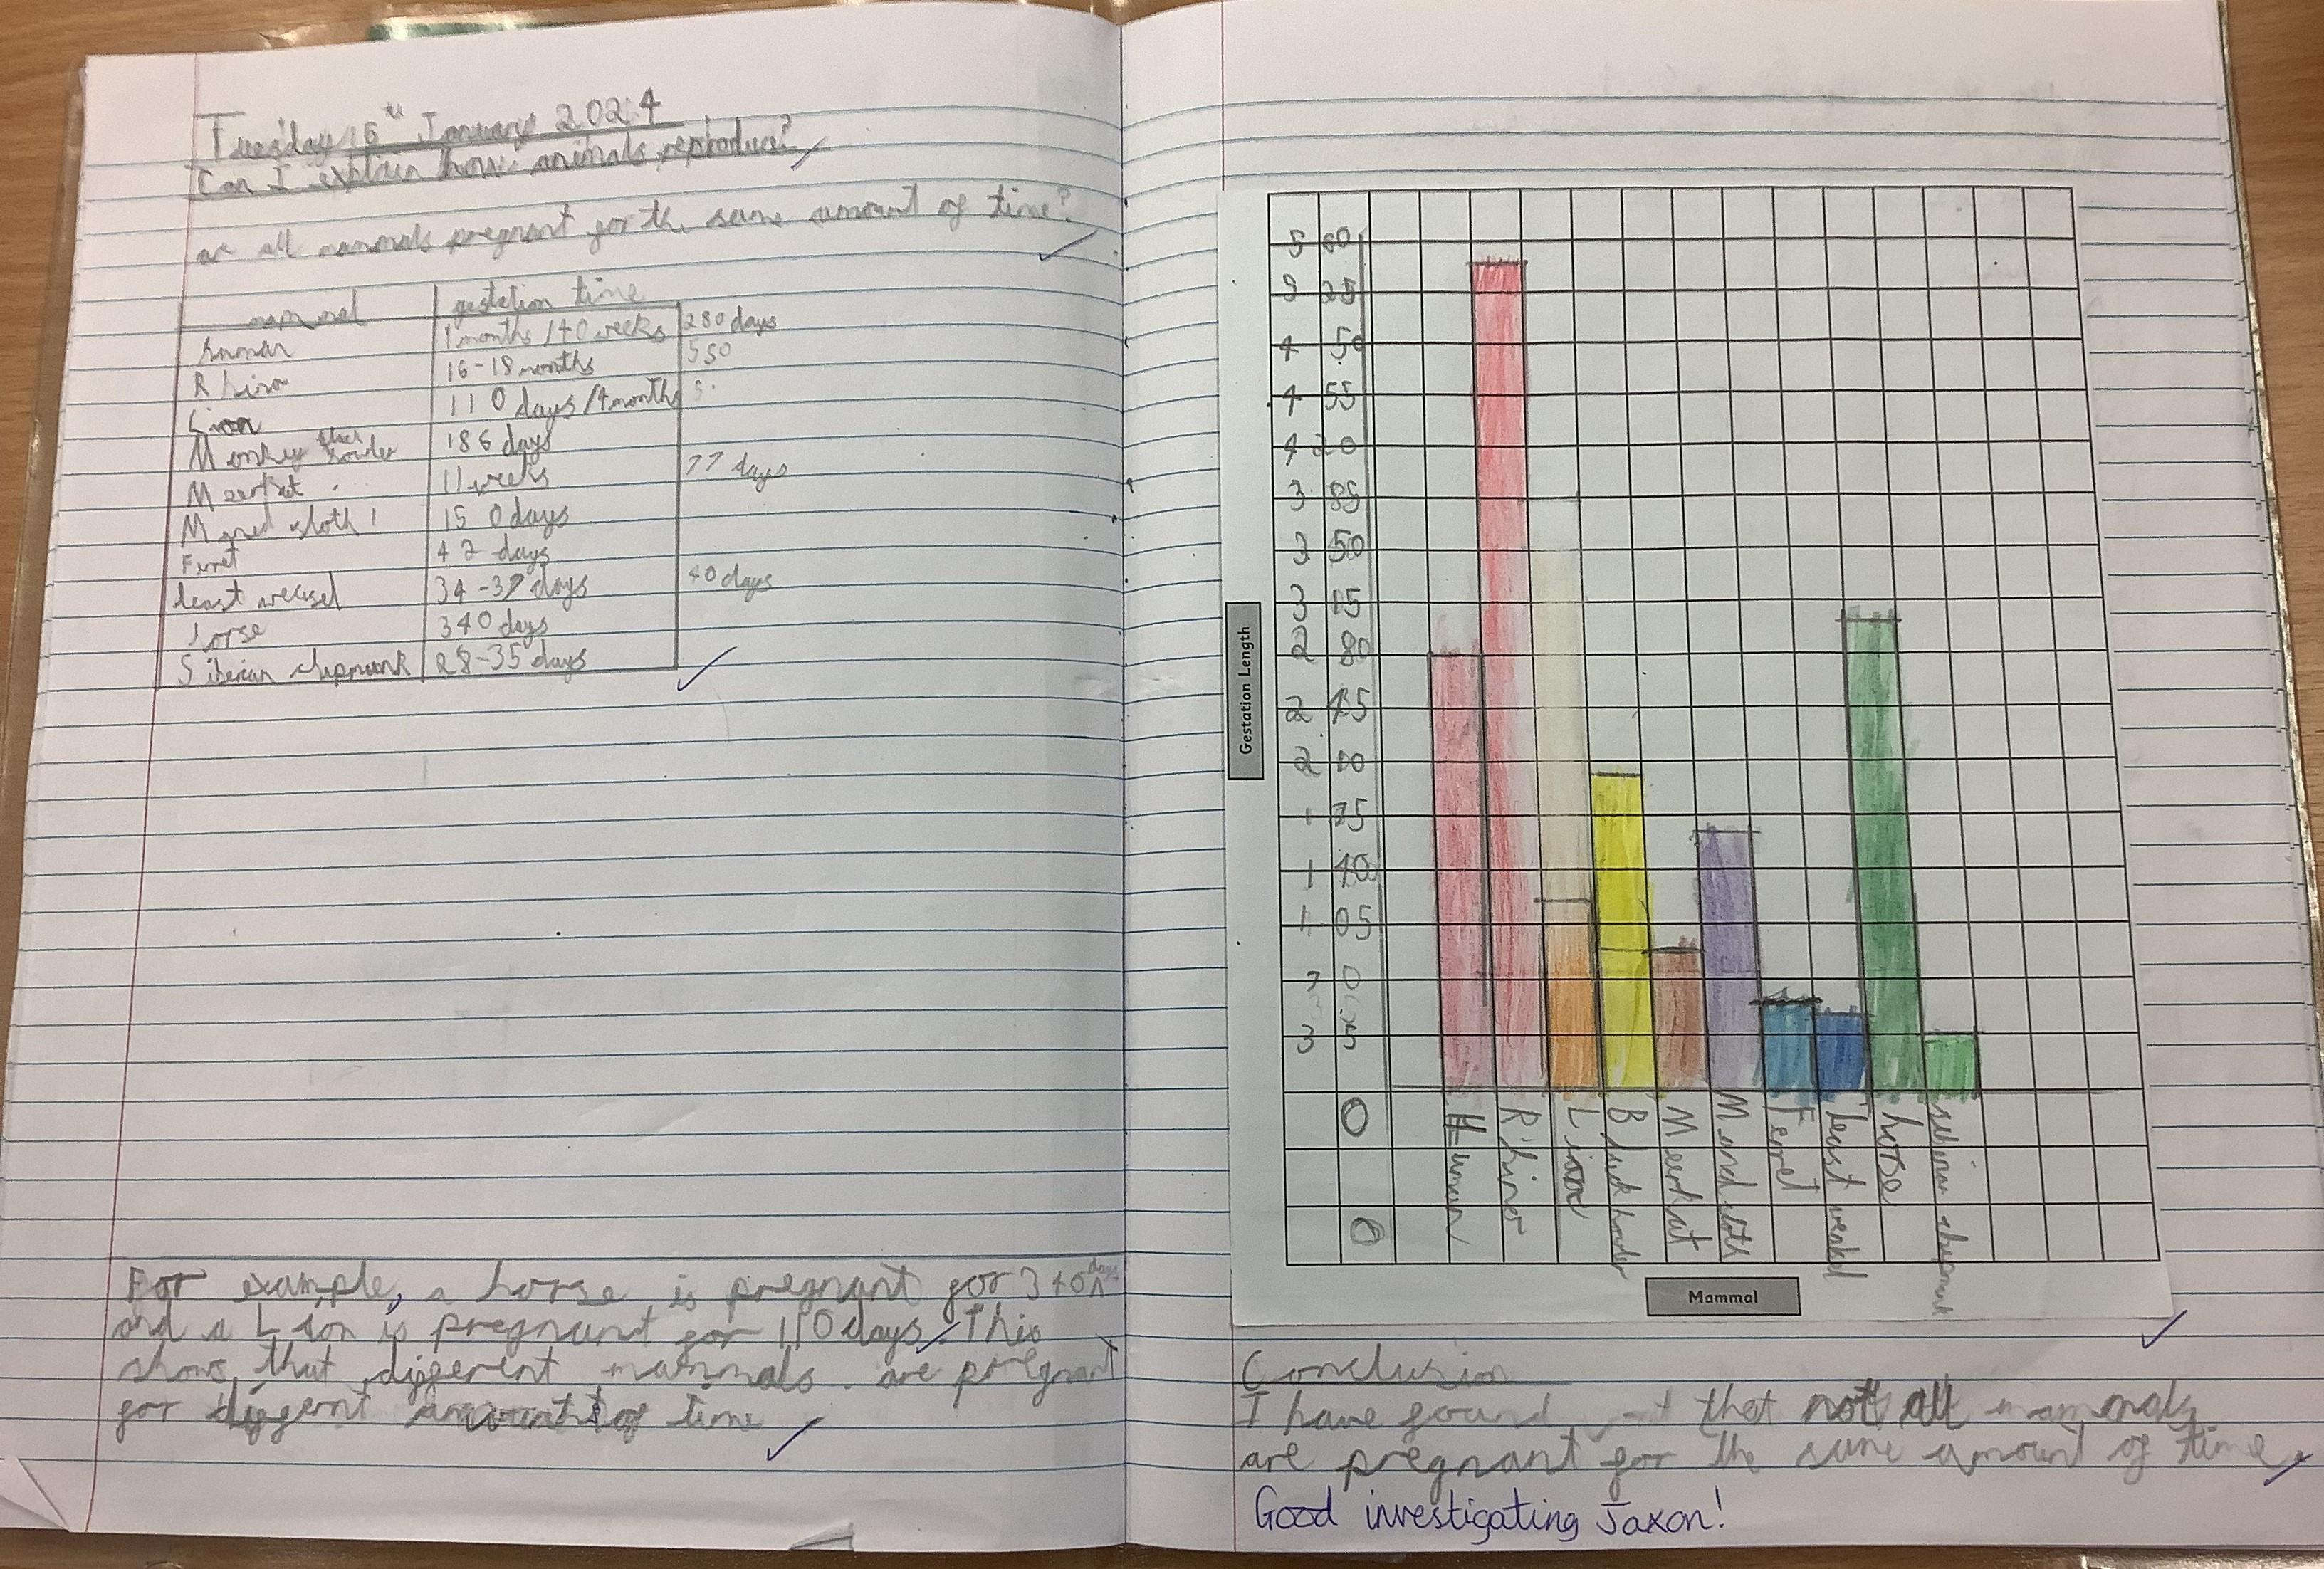 Tuesday 16th January 2024
Can I explain how animals reproduce?
are all mammals pregnant for the same amount of time?
mammal gestation time
human months / 40 weeks 280 days
Rhino 16-18 months 550
Lion 110 days / 4 months
Monkey black howler 186 days
Meerkat 11 weeks 77 days
Maned sloth 150 days
Ferret 42 days
least weasel 34-37 days 40 days
horse 340 days
Siberian chipmunk 28-35 days
For example, a horse is pregnant for 340 days
and a Lion is pregnant for 110 days. This
shows that different mammals are pregnant
for different amount of time
5 60
5 25
4 50
4 55
4 20
3 85
3 50
3 15
2 80
2 45
2 10
1 75
1 40
1 05
7 0
3 5
0
0
Gestation Length
Human
Rhino
Lion
Black howler
Meerkat
Maned sloth
Ferret
least weasel
horse
chipmunk
Mammal
Conclusion
I have found that not all mammals
are pregnant for the same amount of time.
Good investigating Jaxon!